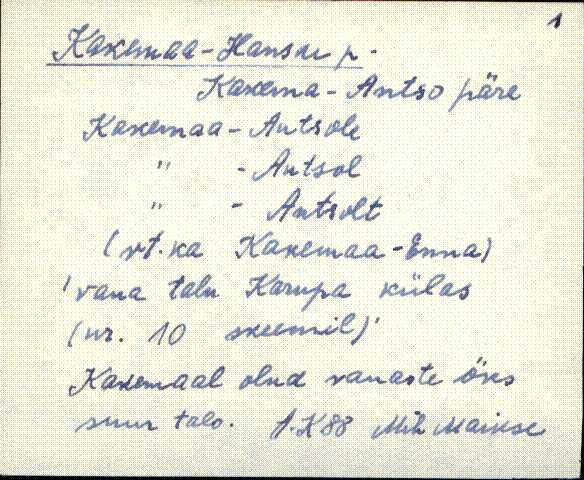 1
Kakemaa-Hansu p.
Kakema-Antso päre
Kakemaa-Antsole
" -Antsol
" - Antsolt
(vt. ka Kakemaa-Enna)
'vana talu Karupa külas
(nr. 10 skeemil)'
Kakemaal olnd vanaste öks
suur talo. J.K88 Mih Maikse